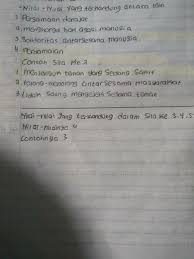 - Nilai - Nilai Yang terkandung antara lain
1. Persamaan derajat
2. menghargai hak asasi manusia
3. Solidaritas antar sesama manusia
4. Perdamaian
Contoh Sila Ke 2
1. Menjenguk teman yang Sedang Sakit
2. tolong-menolong antar sesama masyarakat
3. tidak Saling sesama teman
Nilai-nilai Yang terkandung dalam Sila Ke 3.4.5
Nilai-nilainya 4
Contohnya 3